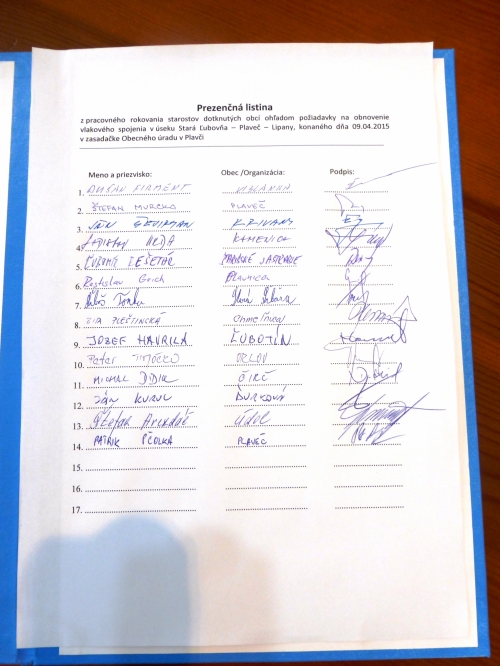 Prezenčná listina
z pracovného rokovania starostov dotknutých obcí ohľadom požiadavky na obnovenie
vlakového spojenia v úseku Stará Ľubovňa – Plaveč – Lipany, konaného dňa 09.04.2015
v zasadačke Obecného úradu v Plavči
Meno a priezvisko: Obec /Organizácia: Podpis:
1. DUŠAN
2. ŠTEFAN MURCKO PLAVEČ
3. JÁN KRIVANY
4. KAMENICA
5. ĽUBOMÍR
6. Rostislav Plavnica
7. Ľuboš Stará Ľubovňa
8. PLEŠTINSKÁ
9. JOZEF HAVRILA ĽUBOTÍN
10. Peter TIMOČKO ORLOV
11. MICHAL DIDIK ČIRČ
12. JÁN KURUC ĎURKOVÁ
13. Štefan Údol
14. PATRIK PČOLKA PLAVEČ
15.
16.
17.